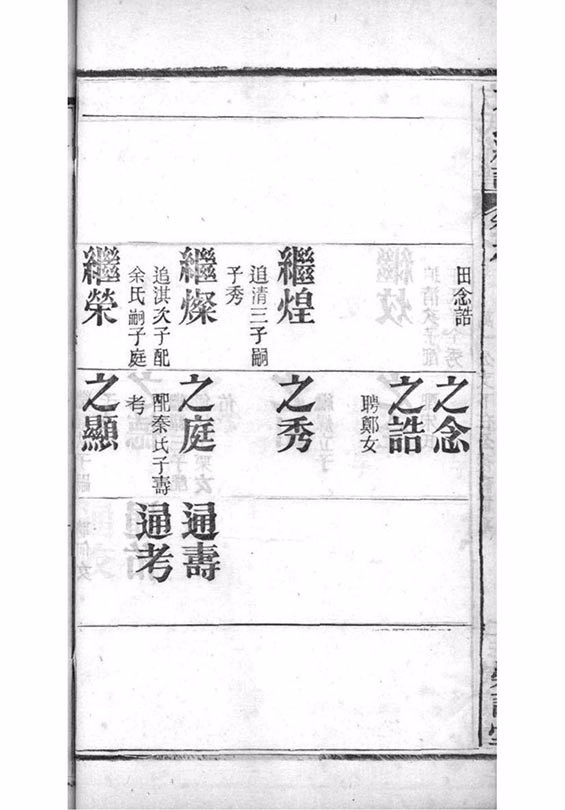 田念誥
繼煌
追清三子嗣
子秀
繼燦
追淇次子配
余氏嗣子庭
繼榮
之念
之誥
聘鄭女
之秀
之庭
配秦氏子壽
考
之顯
通壽
通考